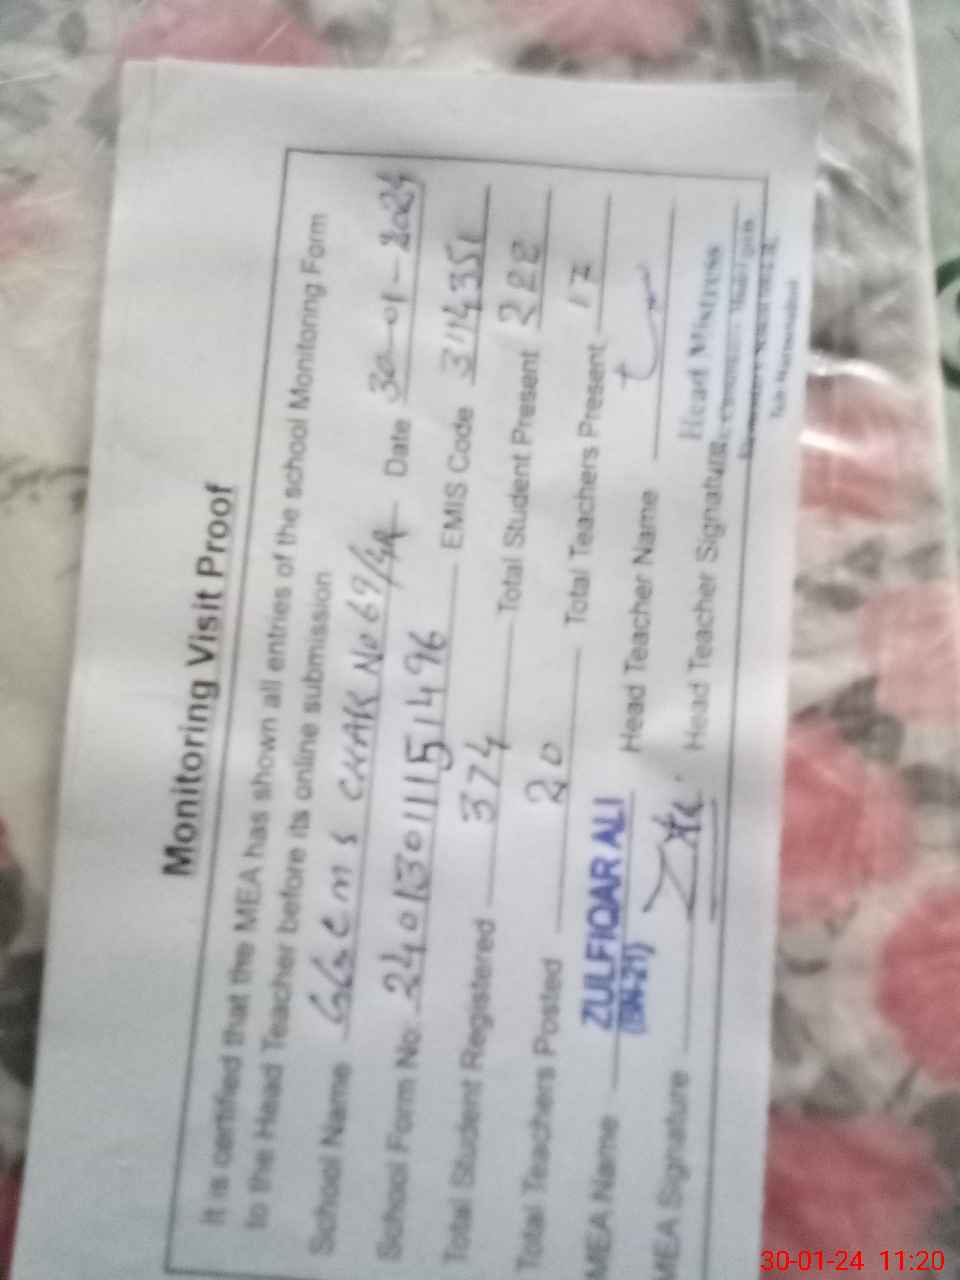 Monitoring Visit Proof
It is certified that the MEA has shown all entries of the school Monitoring Form
to the Head Teacher before its online submission
School Name GGCMS CHAK No 69/4R Date 30-01-2024
School Form No: 240130111151496 EMIS Code 3114351
Total Student Registered 374 Total Student Present 222
Total Teachers Posted 20 Total Teachers Present 17
MEA Name ZULFIQAR ALI Head Teacher Name
(BN-21)
MEA Signature Head Teacher Signature
Head Mistress
30-01-24 11:20